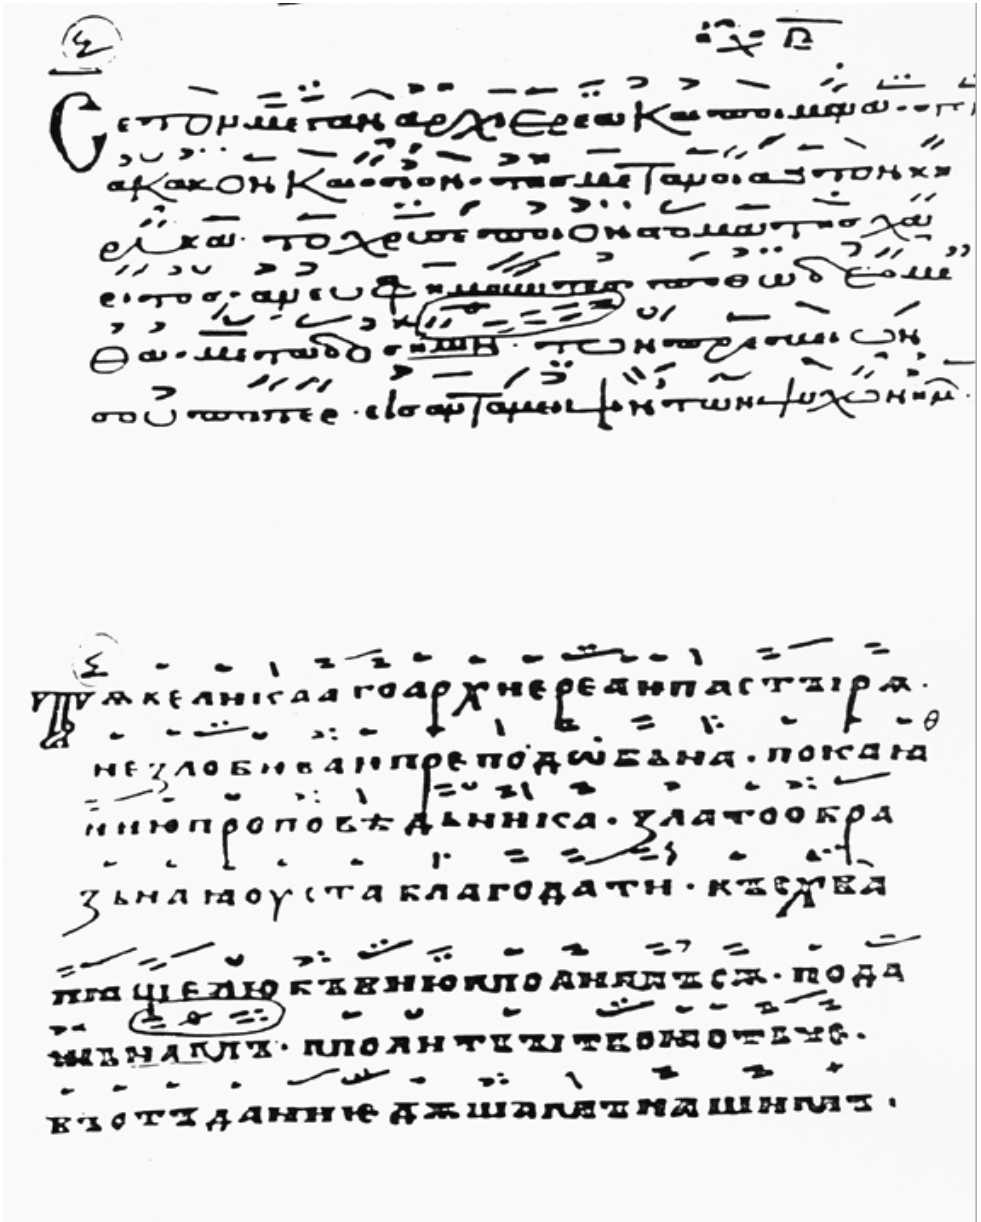 Σ ε τον μεγαν αρχιερεα και ποιμενα · τον
ακακον και οσιον · της μετανοιας τον κη
ρυκα · το χρυσεπον στομα της χα
ριτος · ανευφημουντες ποθω δεομε
θα · μεταδος ημιν · των πρεσβειων
σου πατερ · εις ανταμειψιν των ψυχων ημ ·
Тѧ великааго архиереа и пастꙑрѧ ·
незлобива и преподѡбьна · покаꙗ
нию проповѣдьника · златообра
зьнаꙗ оуста благодати · въсхва
лꙗще любъвию молимъ сѧ · пода
жь намъ · молитвꙑ твоꙗ отьче ·
въ отъданиѥ дѫшамъ нашимъ ·